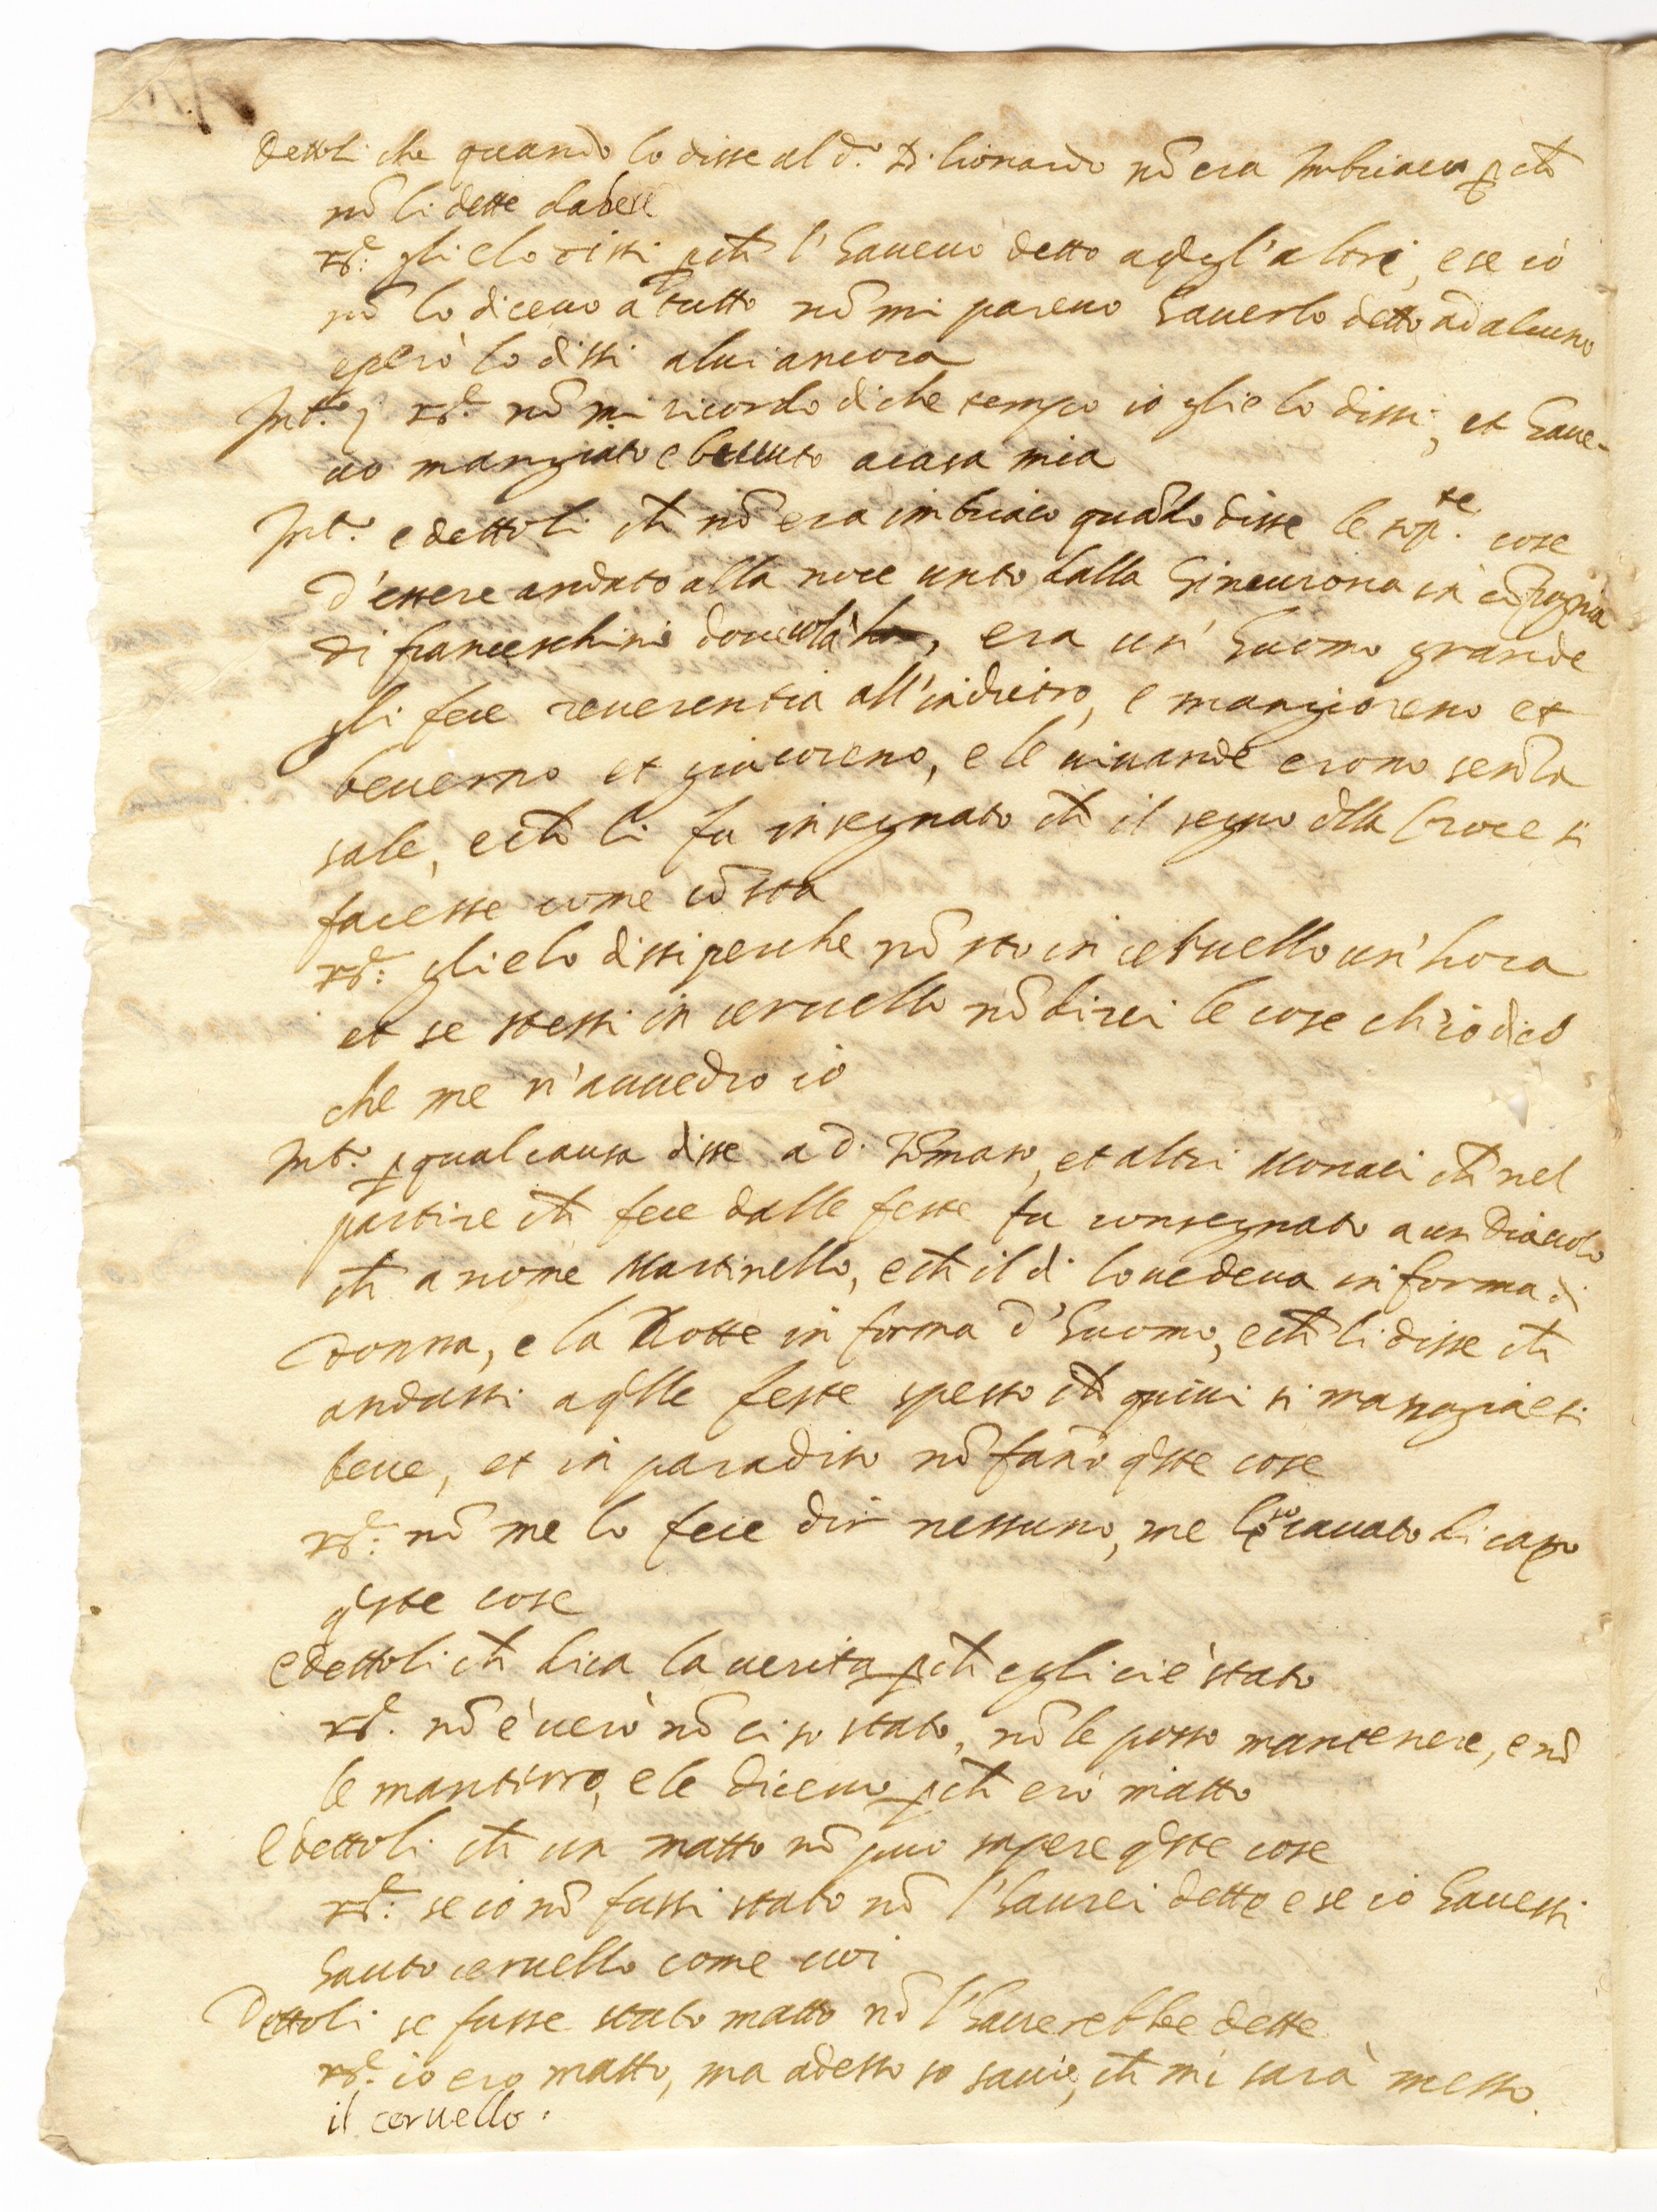 Dettoli che quando lo disse al d.º D. Lionardo nõ era Imbriaco p ch̃
nõ li dette da bere
Rd.e gli elo dissi p ch̃ l'haueuo detto a q̃gl'altri, e se io
nõ lo diceuo a tutto nõ mi pareuo hauerlo detto ad alcuno
e però lo dissi a lui ancora
Int.º j rd.e nõ mi ricordo di che tempo io glie lo dissi, et haue-
uo mangiato e beuuto a casa mia
Int.º e dettoli ch̃ nõ era imbriaco quãdo disse le sop.te cose
d'essere andato alla noce unto dalla Gineurona in cõpagnia
di franceschino doue colà, era un' huomo grande
gli fece reuerentia all'indietro, e mangioreno et
beuerno et giucoreno, e le uiuande erono senza
sale, e ch̃ li fu insegnato ch̃ il segno d̃lla Croce si
facesse come cõsta
rd.e: glielo dissi perche nõ sto in ceruello un'hora
et se stessi in ceruello nõ direi le cose ch'io dico
che me n'auuedro io
Int.º p qual causa disse a D. Tõmaso, et altri Monaci ch̃ nel
partire ch̃ fece dalle feste fu consegnato a un Diauolo
ch̃ a nome Martinello, e ch̃ il dì lo uedeua in forma di
Donna, e la Notte in forma d'huomo, e ch̃ li disse ch̃
andassi a q̃lle feste spesso ch̃ quiui si mangia e si
beue, et in paradiso nõ fanno q̃ste cose
rd.e: nõ me lo fece dir nessuno, me lo so cauato di capo
q̃ste cose
e dettoli ch̃ dica la uerita p ch̃ egli ci è stato
rd.e. nõ è uero nõ ci so stato, nõ le posso mantenere, e nõ
le mantirro, e le diceuo p ch̃ ero matto
E dettoli ch̃ un matto nõ puo sapere q̃ste cose
rd.e: se io nõ fussi stato nõ l'haurei dette e se io hauessi
hauto ceruello come uoi
Dettoli se fusse stato matto nõ l'hauerebbe dette
rd.e: io ero matto, ma adesso so sauio, ch̃ mi sarà messo
il ceruello.